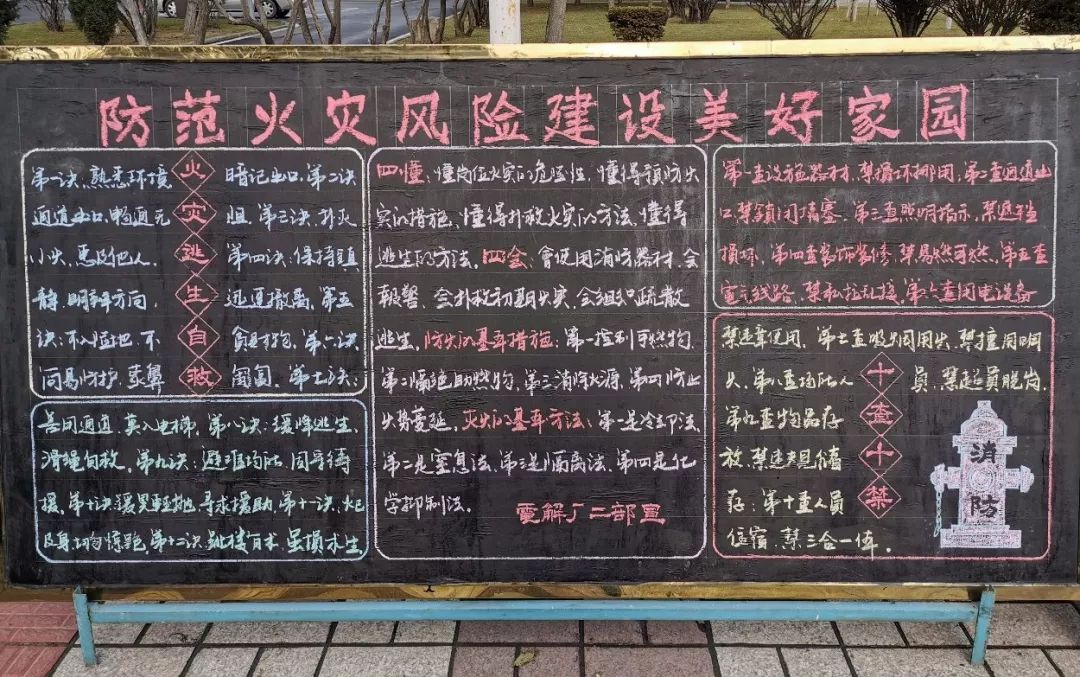 防范火灾风险建设美好家园
火灾逃生自救
第一决,熟悉环境 暗记出口,第二决
通道出口,畅通无 阻,第三决,扑灭
小火,惠及他人, 第四决:保持镇
静,明辨方向, 迅速撤离,第五
决:不入险地,不 贪财物,第六决
简易防护,蒙鼻 匍匐,第七决:
善用通道,莫入电梯,第八决:缓降逃生,
滑绳自救,第九决:避难场所,固守待
援,第十决:缓晃轻抛,寻求援助,第十一决:火
及身切勿惊跑,第十二决,跳楼有术,虽损求生
四懂:懂岗位火灾的危险性,懂得预防火
灾的措施,懂得扑救火灾的方法,懂得
逃生的方法,四会:会使用消防器材,会
报警,会扑救初期火灾,会组织疏散
逃生,防火的基本措施:第一控制可燃物
第二隔绝助燃物,第三消除火源,第四防止
火势蔓延,灭火的基本方法:第一是冷却法,
第二是窒息法,第三是隔离法,第四是化
学抑制法。
电解厂二部宣
第一查设施器材,禁损坏挪用,第二查通道出
口,禁锁闭堵塞,第三查照明指示,禁遮挡
损坏,第四查装饰装修,禁易燃可燃,第五查
电气线路,禁私拉乱接,第六查用电设备
十查十禁
禁违章使用,第七查吸烟用火,禁擅用明
火,第八查场所人 员,禁超员脱岗,
第九查物品存
放,禁违规储
存:第十查人员
住宿,禁三合一体。
消防